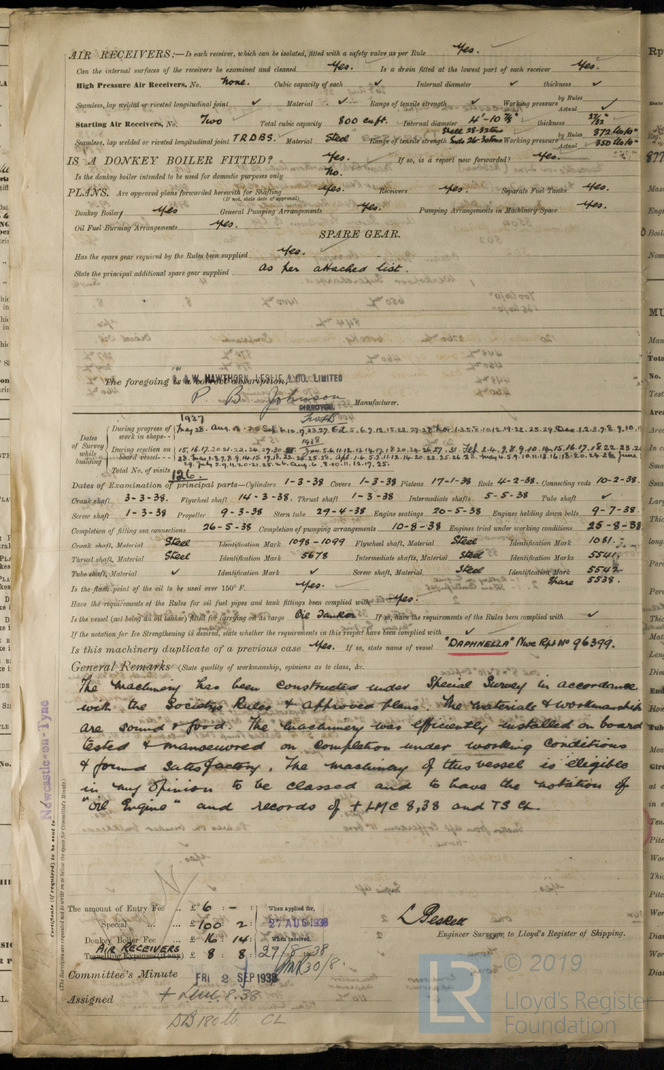 AIR RECEIVERS:—Is each receiver, which can be isolated, fitted with a safety valve as per Rule Yes. ✓
Can the internal surfaces of the receivers be examined and cleaned Yes. Is a drain fitted at the lowest part of each receiver Yes.
High Pressure Air Receivers, No. None. Cubic capacity of each ✓ Internal diameter ✓ thickness ✓
Seamless, lap welded or riveted longitudinal joint ✓ Material ✓ Range of tensile strength ✓ Working pressure by Rules Actual ✓
Starting Air Receivers, No. Two Total cubic capacity 800 cu ft. Internal diameter thickness
Seamless, lap welded or riveted longitudinal joint T.R.D.B.S. Material Steel Range of tensile strength Shell 28-32 tons Ends 26-30 tons Working pressure by Rules 372 Actual 350
IS A DONKEY BOILER FITTED? Yes. If so, is a report now forwarded? Yes.
Is the donkey boiler intended to be used for domestic purposes only No.
PLANS. Are approved plans forwarded herewith for Shafting Yes. Receivers Yes. Separate Fuel Tanks Yes.
(If not, state date of approval)
Donkey Boiler Yes General Pumping Arrangements Yes. Pumping Arrangements in Machinery Space Yes.
Oil Fuel Burning Arrangements Yes.
SPARE GEAR.
Has the spare gear required by the Rules been supplied Yes.
State the principal additional spare gear supplied as per attached list.
R. & W. HAWTHORN, LESLIE & CO. LIMITED
The foregoing is a correct description,
P. B. Johnson Manufacturer.
DIRECTOR
Dates of Survey while building
1937
During progress of work in shops--
1938
During erection on board vessel---
Total No. of visits 126.
Dates of Examination of principal parts—Cylinders 1-3-38 Covers 1-3-38 Pistons 17-1-38 Rods 4-2-38. Connecting rods 10-2-38.
Crank shaft 3-3-38. Flywheel shaft 14-3-38. Thrust shaft 1-3-38 Intermediate shafts 5-5-38 Tube shaft ✓
Screw shaft 1-3-38 Propeller 9-3-38 Stern tube 29-4-38 Engine seatings 20-5-38 Engines holding down bolts 9-7-38.
Completion of fitting sea connections 26-5-38 Completion of pumping arrangements 10-8-38 Engines tried under working conditions 25-8-38
Crank shaft, Material Steel Identification Mark 1098-1099 Flywheel shaft, Material Steel Identification Mark 1081.
Thrust shaft, Material Steel Identification Mark 5678 Intermediate shafts, Material Steel Identification Marks 5541.
Tube shaft, Material ✓ Identification Mark ✓ Screw shaft, Material Steel Identification Mark 5542
Spare 5538.
Is the flash point of the oil to be used over 150° F. Yes.
Have the requirements of the Rules for oil fuel pipes and tank fittings been complied with Yes.
Is the vessel (not being an oil tanker) fitted for carrying oil as cargo Oil Tanker If so, have the requirements of the Rules been complied with ✓
If the notation for Ice Strengthening is desired, state whether the requirements in this respect have been complied with ✓
Is this machinery duplicate of a previous case Yes. If so, state name of vessel "DAPHNELLA" Nwc Rpt No 96399.
General Remarks (State quality of workmanship, opinions as to class, &c.
The machinery has been constructed under Special Survey in accordance
with the Societys Rules & approved plans. The materials & workmanship
are sound & good. The machinery was efficiently installed on board
tested & manoeuvred on completion under working conditions
& found satisfactory. The machinery of this vessel is eligible
in my opinion to be classed and to have the notation of
"Oil Engine" and records of + LMC 8,38 and TS CL.
Newcastle-on-Tyne
Certificate (if required) to be sent to
(The Surveyors are requested not to write on or below the space for Committee's Minute.)
The amount of Entry Fee .. £ 6 : - : When applied for,
Special ... £ 100 : 2 : 27 AUG 1938
Donkey Boiler Fee ... £ 16 : 14 : When received,
AIR RECEIVERS
Travelling Expenses (if any) £ 8 : 8 : 29/8/38
30/8.
Engineer Surveyor to Lloyd's Register of Shipping.
Committee's Minute FRI 2 SEP 1938
Assigned + LMC 8.38
DB 180 lb CL
© 2019
LR
Lloyd's Register
Foundation